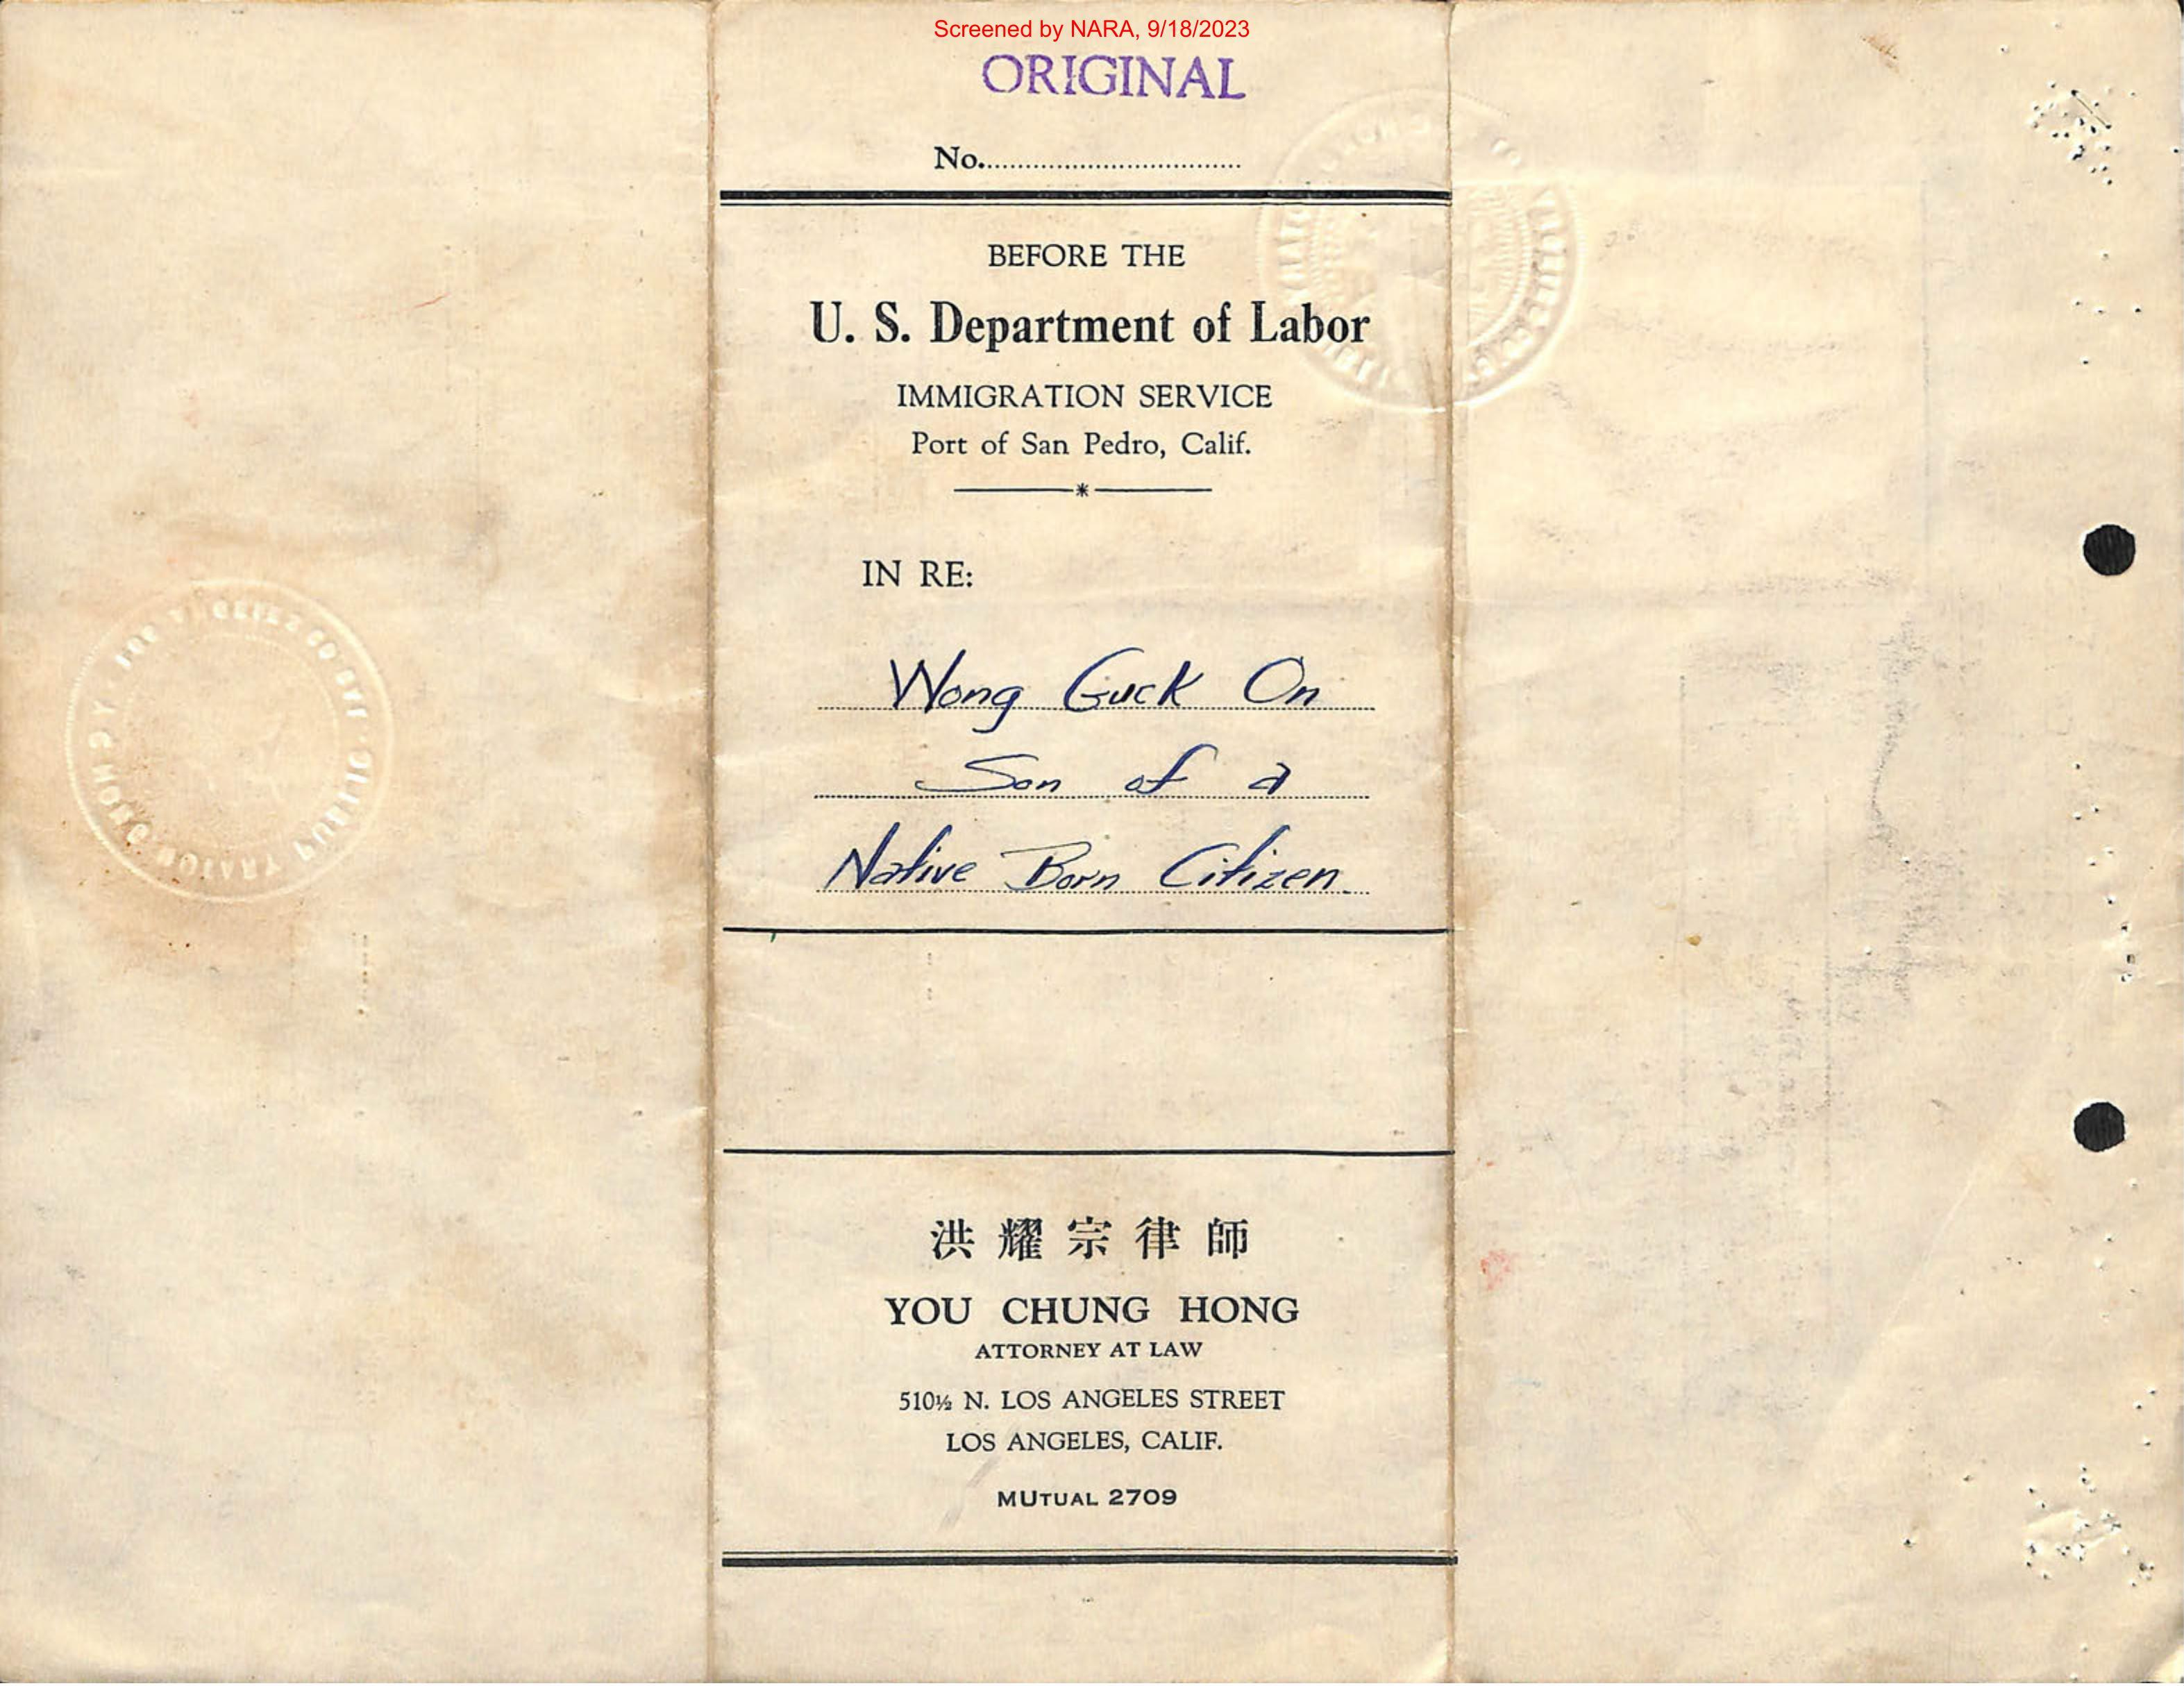 Screened by NARA, 9/18/2023
ORIGINAL
No.................................
BEFORE THE
U. S. Department of Labor
IMMIGRATION SERVICE
Port of San Pedro, Calif.
IN RE:
Wong Guck On
Son of a
Native Born Citizen.
洪耀宗律師
YOU CHUNG HONG
ATTORNEY AT LAW
510½ N. LOS ANGELES STREET
LOS ANGELES, CALIF.
MUTUAL 2709